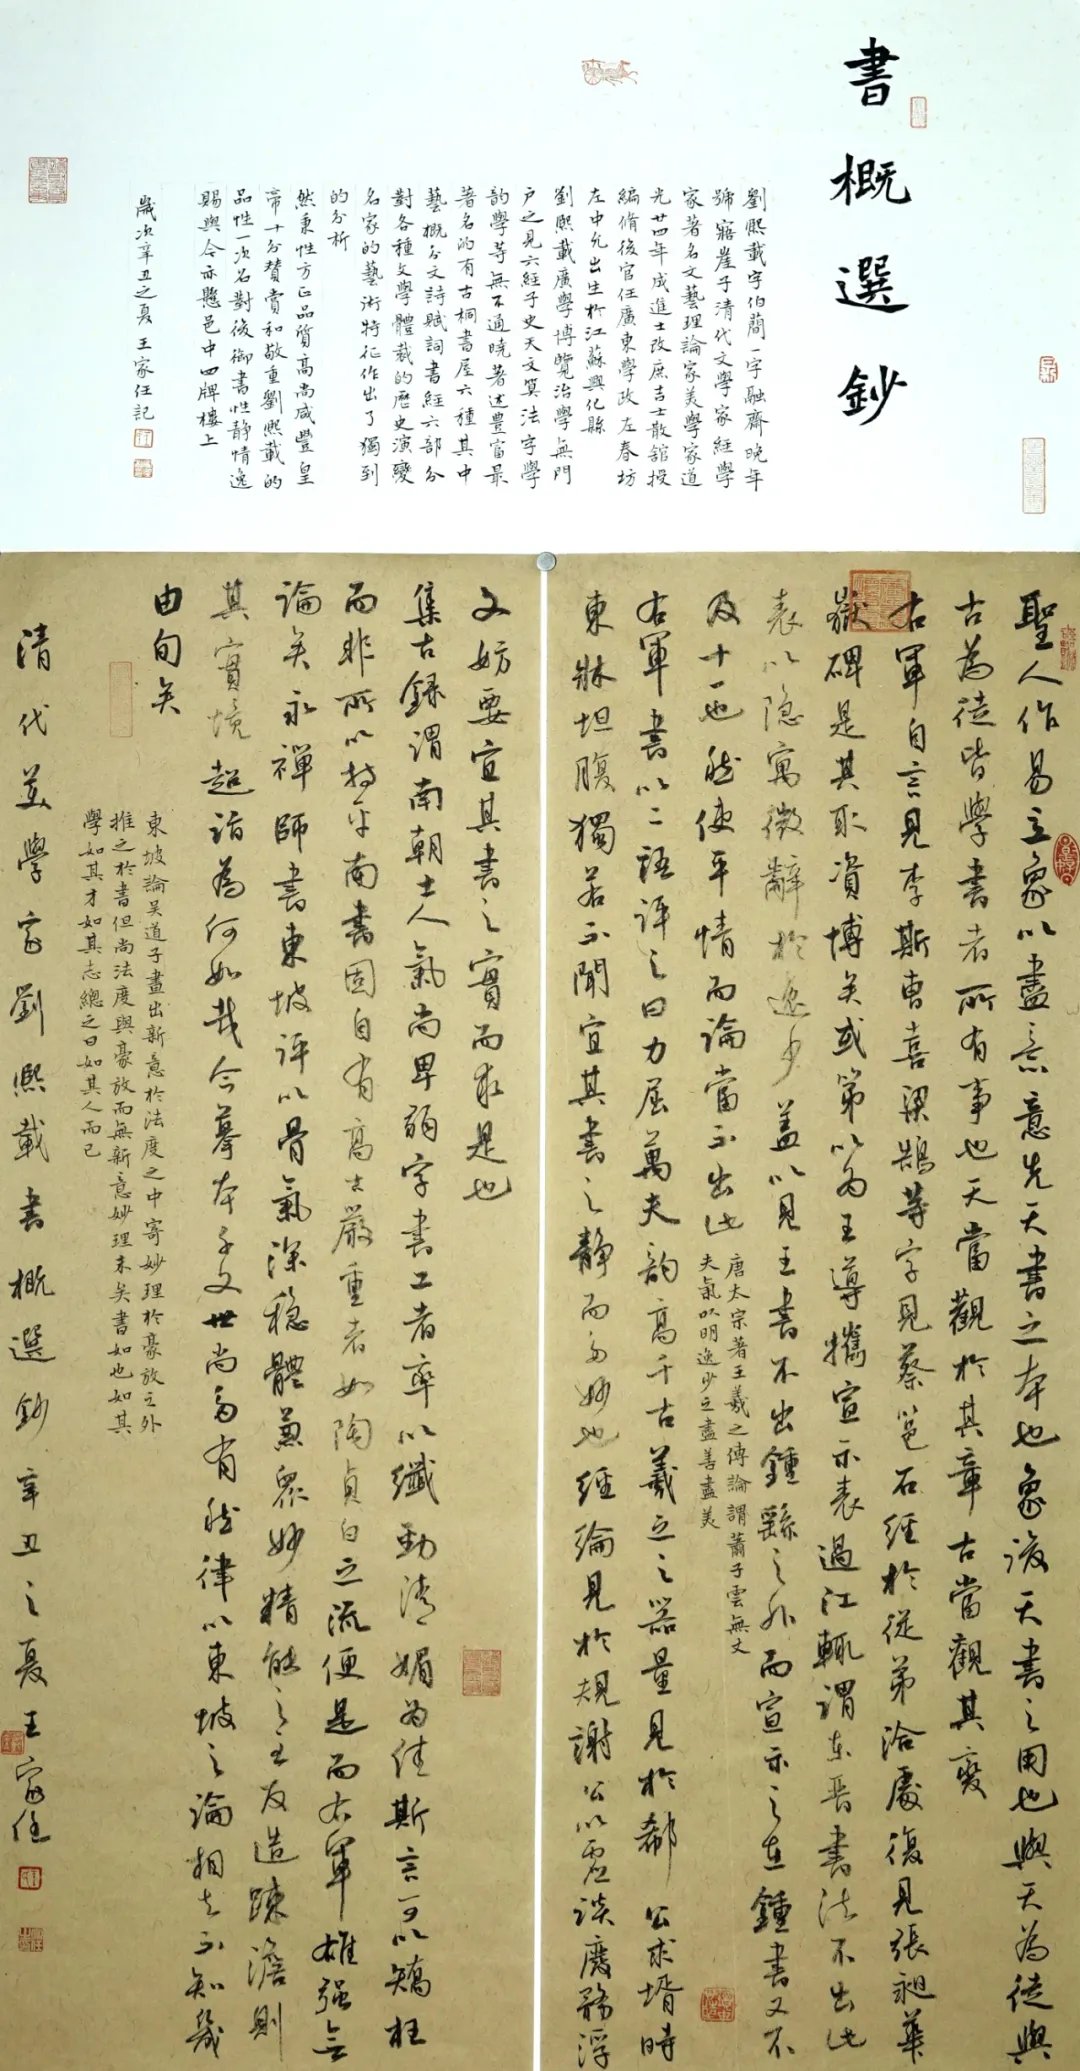 書概選鈔
劉熙載字伯蕳一字融齋晚年
號寤崖子清代文學家經學
家著名文藝理論家美學家道
光廿四年成進士改庶吉士散舘授
編脩後官任廣東學政左春坊
左中允出生於江蘇興化縣
劉熙載廣學博覽治學無門
户之見六經子史天文算法字學
韵學等無不通曉著述豊富最
著名的有古桐書屋六種其中
藝概分文詩賦詞書經六部分
對各種文學體裁的歷史演變
名家的藝術特征作出了獨到
的分析
然秉性方正品質高尚咸豐皇
帝十分賛賞和敬重劉熙載的
品性一次名對後御書性静情逸
賜與今亦懸邑中四牌樓上
歲次辛丑之夏王家任記
聖人作易立象以盡意意先天書之本也象後天書之用也與天為徒與
古為徒皆學書者所有事也天當觀於其章古當觀其變
右軍自言見李斯曹喜梁鵠等字見蔡邕石經於從弟洽處復見張昶華
嶽碑是其取資博矣或第以為王導攜宣示表過江輒謂東晋書法不出此
表以隐寓微辭於逸少蓋以見王書不出鍾繇之外而宣示之在鍾書又不
及十一也然使平情而論當不出此
唐太宗著王羲之傳論謂蕭子雲無丈
夫氣以明逸少之盡善盡美
右軍書以二語評之曰力屈萬夫韵高千古羲之之器量見於郗公求壻時
東牀坦腹獨若不聞宜其書之静而多妙也經綸見於規謝公以虚談廢務浮
文妨要宜其書之實而求是也
集古録謂南朝士人氣尚卑弱字書工者率以纖勁清媚為佳斯言可以矯枉
而非所以持平南書固自有高古嚴重者如陶貞白之流便是而右軍雄强無
論矣永禪師書東坡評以骨氣深穩體兼衆妙精能之至反造疎澹則
其實境超詣為何如哉今摹本千文世尚多有然律以東坡之論相去不知幾
由旬矣
東坡論吴道子畫出新意於法度之中寄妙理於豪放之外
推之於書但尚法度與豪放而無新意妙理末矣書如也如其
學如其才如其志總之曰如其人而已
清代美學家劉熙載書概選鈔辛丑之夏王家任